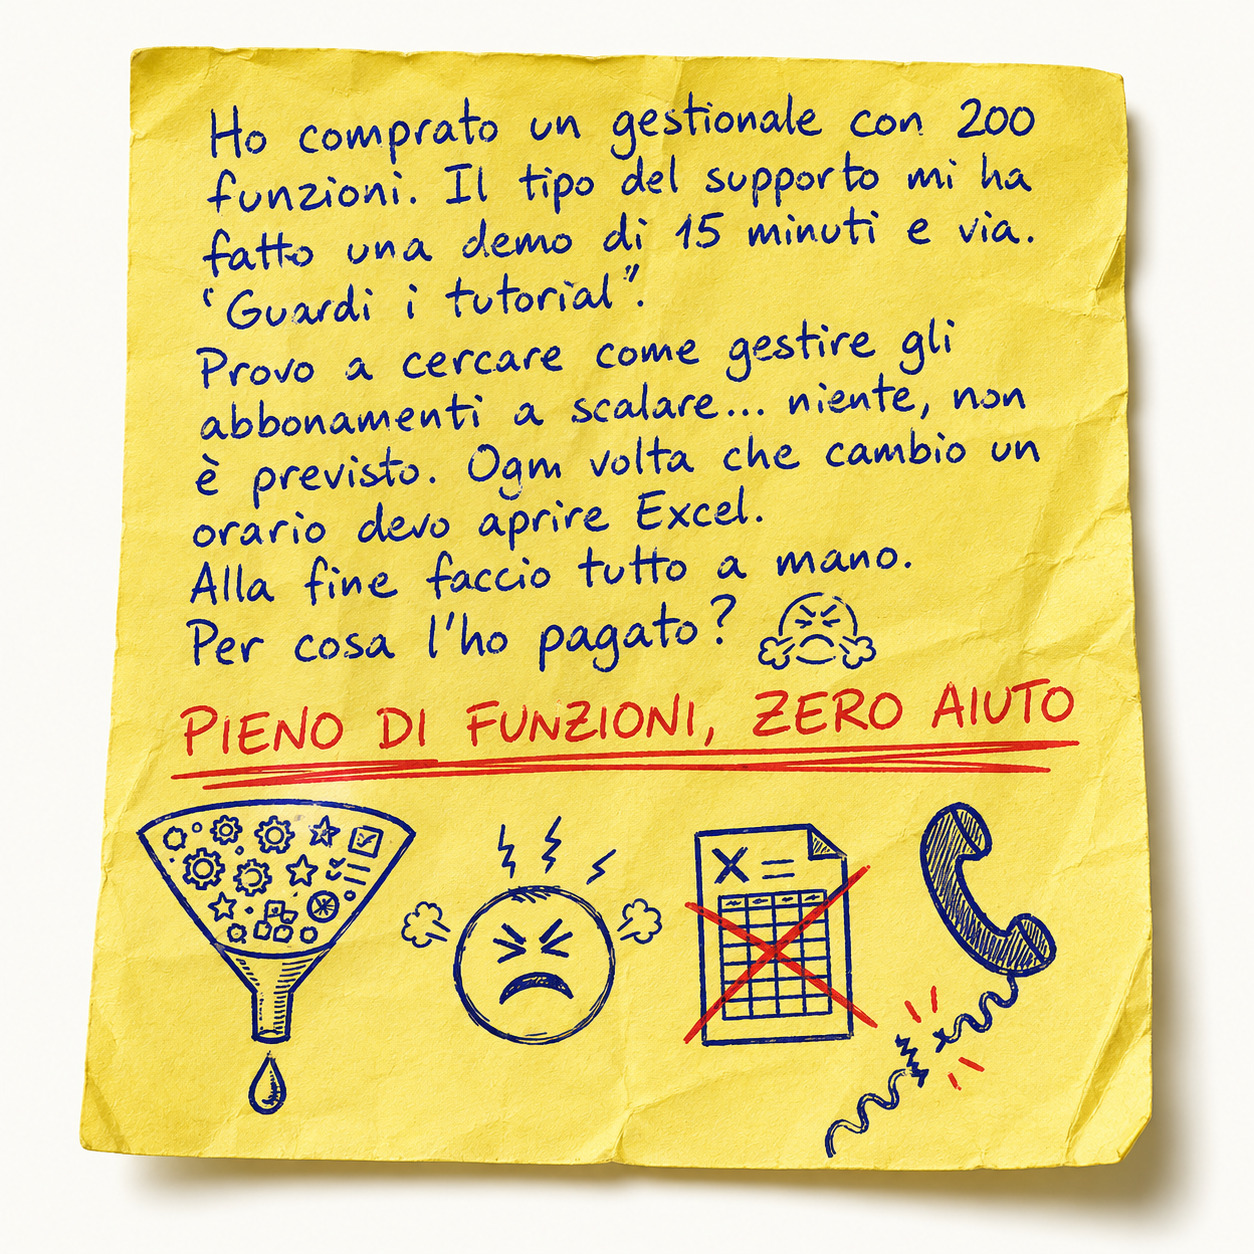 Ho comprato un gestionale con 200
funzioni. Il tipo del supporto mi ha
fatto una demo di 15 minuti e via.
“Guardi i tutorial”.
Provo a cercare come gestire gli
abbonamenti a scalare... niente, non
è previsto. Ogni volta che cambio un
orario devo aprire Excel.
Alla fine faccio tutto a mano.
Per cosa l'ho pagato?
PIENO DI FUNZIONI, ZERO AIUTO
X